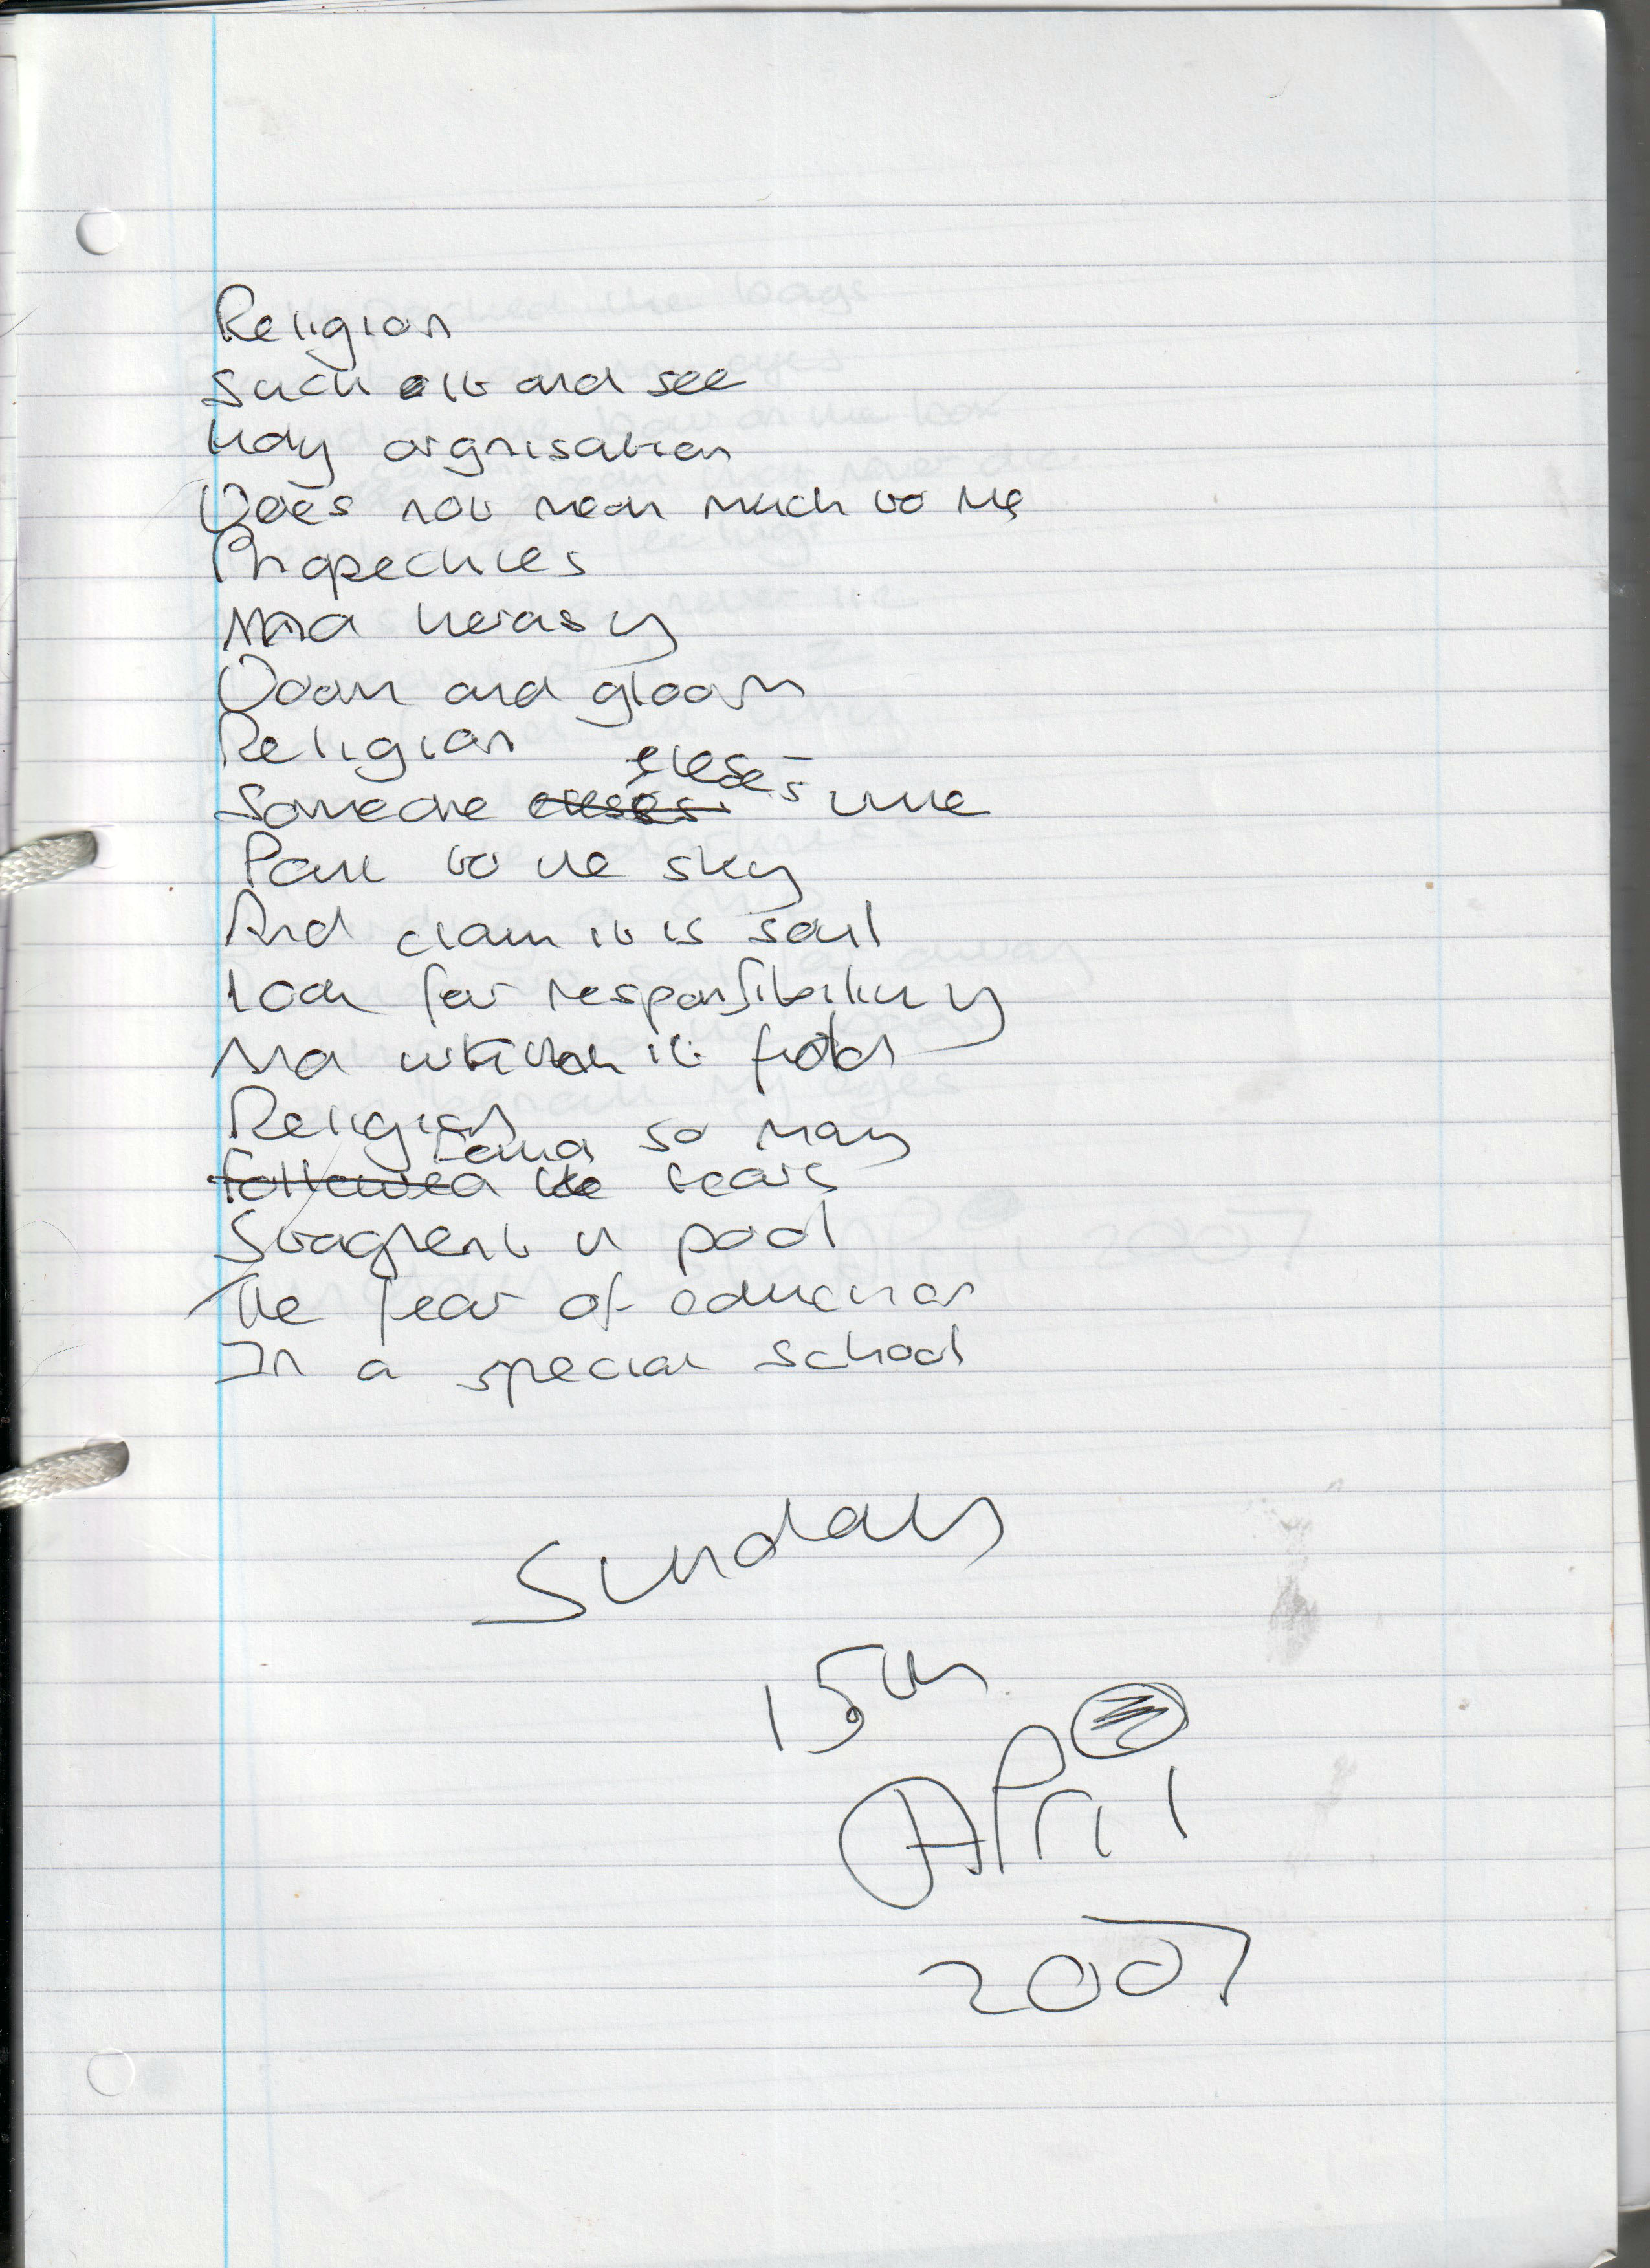 Religion
Such it and see
Holy orgnisation
Does not mean much to me
Prhopechies
And herasy
Doom and gloom
Religion
Someone eleses time
Point to the sky
And claim it is soul
Look for responsibility
And within it
Religion
Found so many
followed the tears
Stagnent in pool
The fear of education
In a special school
Sunday
15th
April
2007